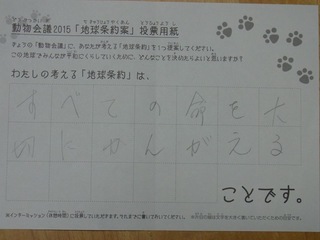 動物会議2015「地球条約案」投票用紙
きょうの「動物会議」に、あなたが考える「地球条約」を1つ提案してください。
この地球でみんなが平和にくらしていくために、どんなことを決めたらよいと思いますか?
わたしの考える「地球条約」は、
すべての命を大
切にかんがえる
ことです。